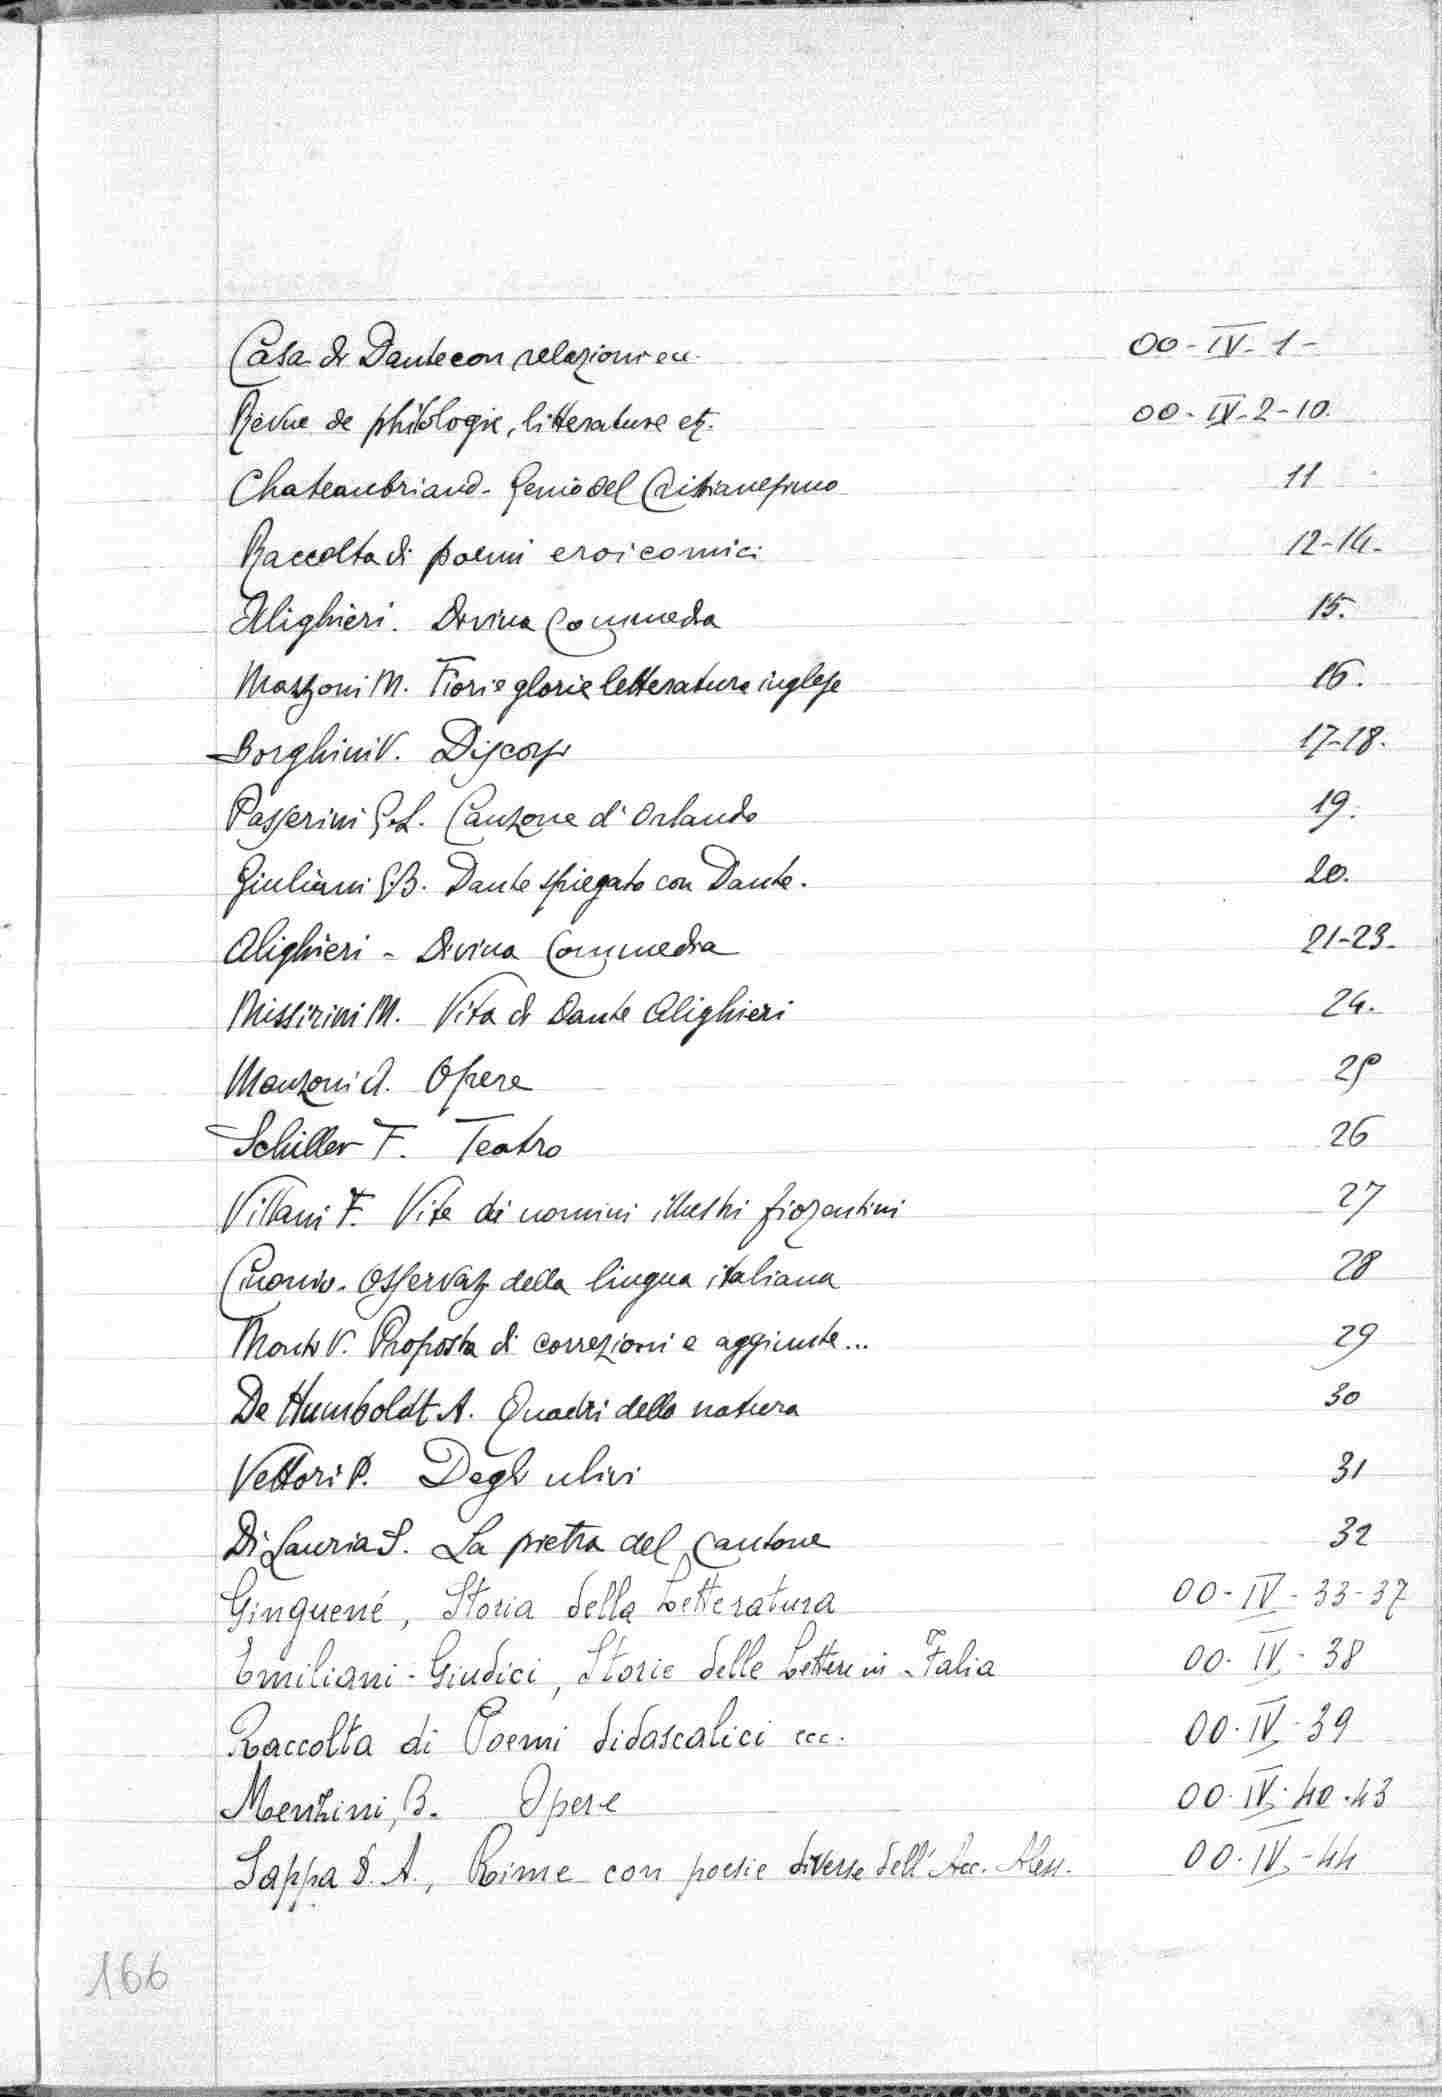 Casa di Dante con relazioni ecc. 00-IV-1-
Revue de philologie, litterature etz. 00-IV-2-10.
Chateaubriand - Genio del Cristianesimo 11
Raccolta di poemi eroicomici 12-14.
Alighieri. Divina Commedia 15.
Mazzoni M. Fiori e glorie letteratura inglese 16.
Borghini V. Discorsi 17-18.
Passerini G.L. Canzone d'Orlando 19.
Giuliani G.B. Dante spiegato con Dante. 20.
Alighieri - Divina Commedia 21-23.
Missirini M. Vita di Dante Alighieri 24.
Manzoni A. Opere 25
Schiller F. Teatro 26
Villani F. Vite di uomini illustri fiorentini 27
Cinonio - Osservaz della lingua italiana 28
Monti V. Proposta di correzioni e aggiunte... 29
De Humboldt A. Quadri della natura 30
Vettori P. Degli ulivi 31
Di Lauria S. La pietra del cantone 32
Ginguené, Storia della Letteratura 00-IV-33-37
Emiliani-Giudici, Storie delle Lettere in Italia 00-IV-38
Raccolta di Poemi didascalici ecc. 00-IV-39
Menzini, B. Opere 00-IV-40-43
Sappa D. A., Rime con poesie diverse dell'Acc. Aless. 00-IV-44
166